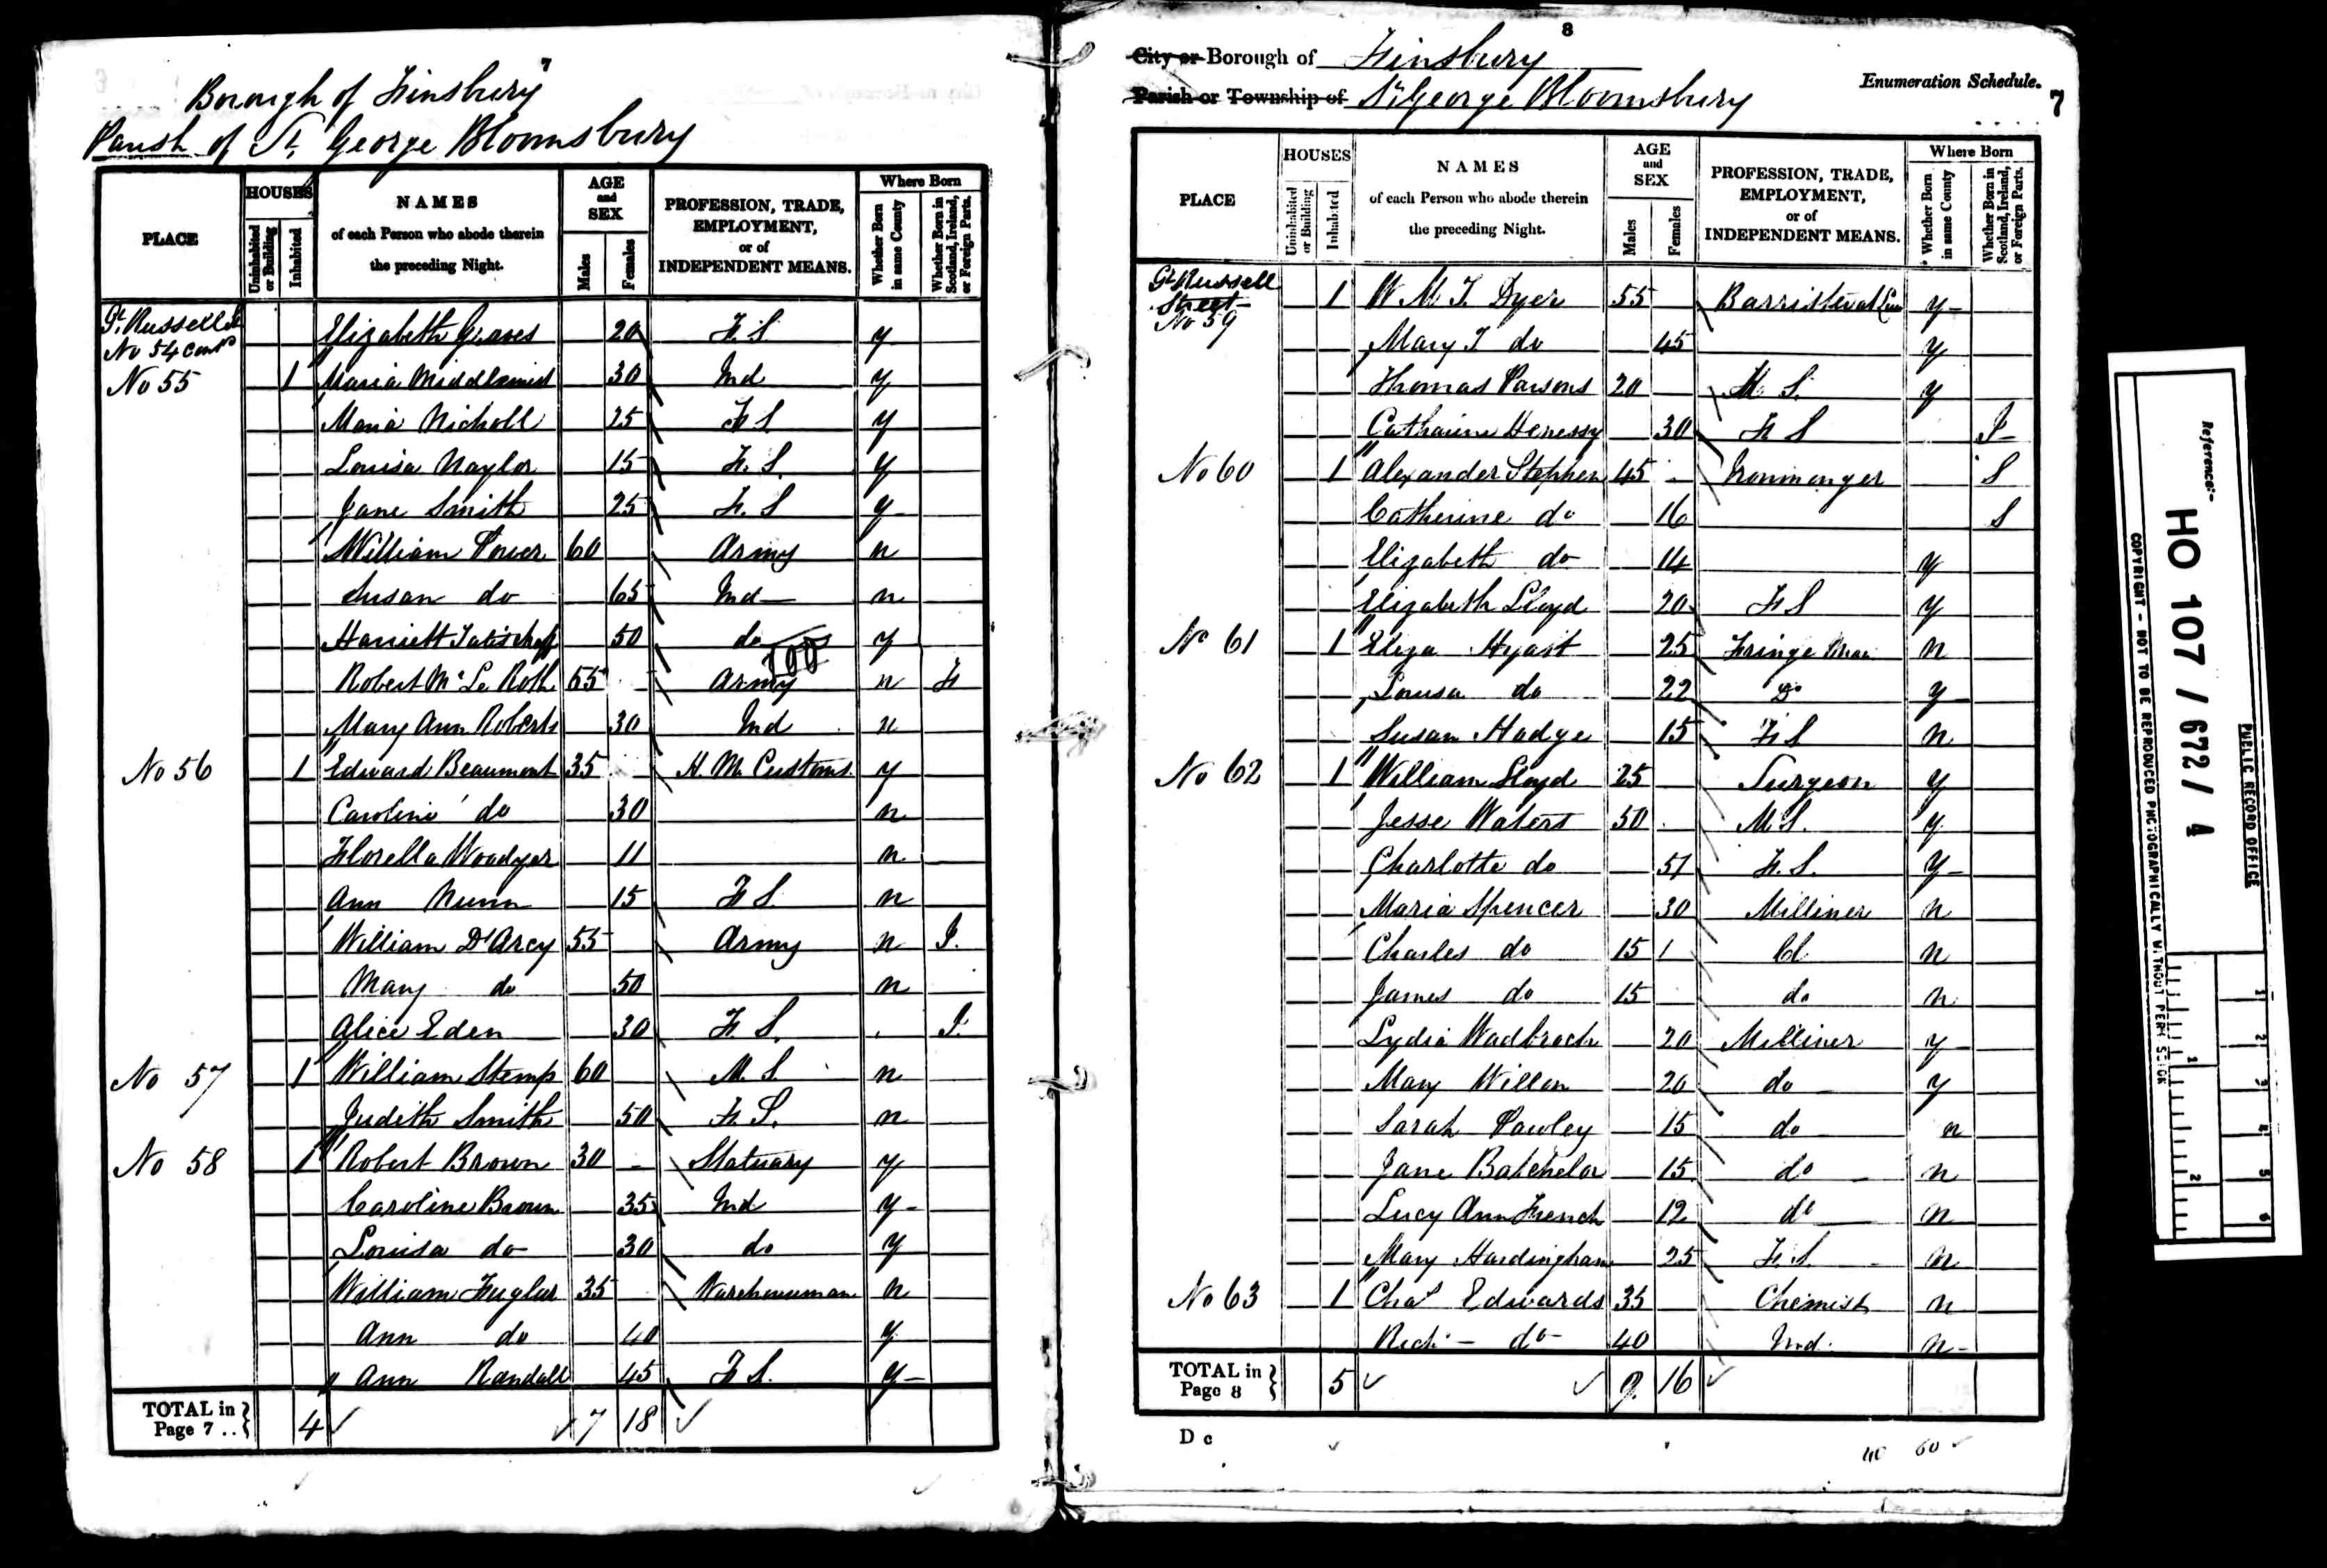 7
Borough of Finsbury
Parish of St. George Bloomsbury
PLACE
HOUSES
Uninhabited or Building
Inhabited
NAMES
of each Person who abode therein
the preceding Night.
AGE
and
SEX
Males
Females
PROFESSION, TRADE,
EMPLOYMENT,
or of
INDEPENDENT MEANS.
Where Born
Whether Born in same County
Whether Born in Scotland, Ireland, or Foreign Parts.
Gt. Russell St
No 54 contd Elizabeth Graves 20 F.S. y
No 55 1 Maria 30 Ind y
Maria Nicholl 25 F S y
Louisa Naylor 15 F. S. y
Jane Smith 25 F. S y
William Power 60 Army n
Susan do 65 Ind n
Harriett 50 do y
100
Robert Mc Le Roth 55 Army n F
Mary Ann Roberts 30 Ind n
No 56 1 Edward Beaumont 35 H. M. Customs y
Caroline do 30 n
Florella Woodyer 11 n
Ann Nunn 15 F S. n
William D'Arcy 55 Army n I.
Mary do 50 n
Alice Eden 30 F S. I.
No 57 1 William Stemp 60 M. S. n
Judith Smith 50 F. S. n
No 58 1 Robert Brown 30 Statuary y
Caroline Brown 35 Ind y
Louisa do 30 do y
William Fuglar 35 Warehouseman n
Ann do 40 y
Ann Randall 45 F S. y
TOTAL in
Page 7 .. 4 7 18
8
City or Borough of Finsbury
Parish or Township of St George Bloomsbury
Enumeration Schedule.
7
PLACE
HOUSES
Uninhabited or Building
Inhabited
NAMES
of each Person who abode therein
the preceding Night.
AGE
and
SEX
Males
Females
PROFESSION, TRADE,
EMPLOYMENT,
or of
INDEPENDENT MEANS.
Where Born
Whether Born in same County
Whether Born in Scotland, Ireland, or Foreign Parts.
Gt Russell
Street
No 59 1 W M T Dyer 55 Barrister at Law y
Mary T do 45 y
Thomas Parsons 20 M. S. y
Catharine Henessy 30 F S I
No 60 1 Alexander Stephen 45 Ironmonger S
Catherine do 16 S
Elizabeth do 14 y
Elizabeth Lloyd 20 F S y
No 61 1 Eliza Hyast 25 Fringe Mak n
Louisa do 22 Do y
Susan Hadge 15 F S n
No 62 1 William Lloyd 25 Surgeon y
Jesse Waters 50 M S. y
Charlotte do 51 F. S. y
Maria Spencer 30 Milliner n
Charles do 15 Cl n
James do 15 do n
Lydia 20 Milliner y
Mary Willan 20 do y
Sarah Pawley 15 do n
Jane Batchelor 15 do n
Lucy Ann French 12 do n
Mary Hardingham 25 F. S. n
No 63 1 Chas Edwards 35 Chemist n
Richd do 40 Ind. n
TOTAL in
Page 8 5 9 16
D c
40 60
Reference:-
HO 107 / 672 / 4
PUBLIC RECORD OFFICE
COPYRIGHT - NOT TO BE REPRODUCED PHOTOGRAPHICALLY WITHOUT PERMISSION
1
2
1
2
3
4
5
6